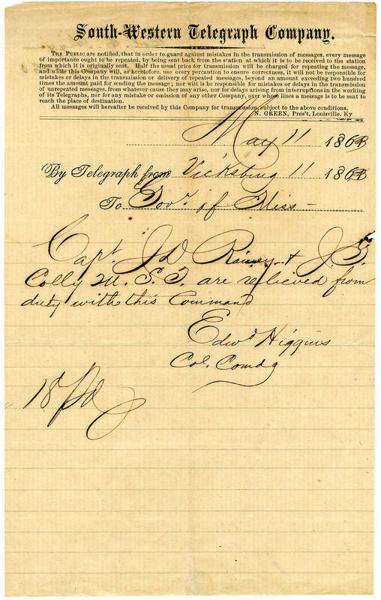 South-Western Telegraph Company.
THE PUBLIC are notified, that in order to guard against mistakes in the transmission of messages, every message
of importance ought to be repeated, by being sent back from the station at which it is to be received to the station
from which it is originally sent. Half the usual price for transmission will be charged for repeating the message,
and while this Company will, as heretofore, use every precaution to ensure correctness, it will not be responsible
for mistakes or delays in the transmission or delivery of repeated messages, beyond an amount exceeding two hundred
times the amount paid for sending the message; nor will it be responsible for mistakes or delays in the transmission
of unrepeated messages, from whatever cause they may arise, nor for delays arising from interruptions in the working
of its Telegraphs, nor for any mistake or omission of any other Company, over whose lines a message is to be sent to
reach the place of destination.
All messages will hereafter be received by this Company for transmission, subject to the above conditions.
N. GREEN, Pres't, Louisville, Ky
May 11 1863
By Telegraph from Vicksburg 11 1863
To Govr of Miss-
Capt J D Rainey & J T
Colly M. S. T. are relieved from
duty with this Command
Edwd Higgins
Col. Comdg
18 Pd